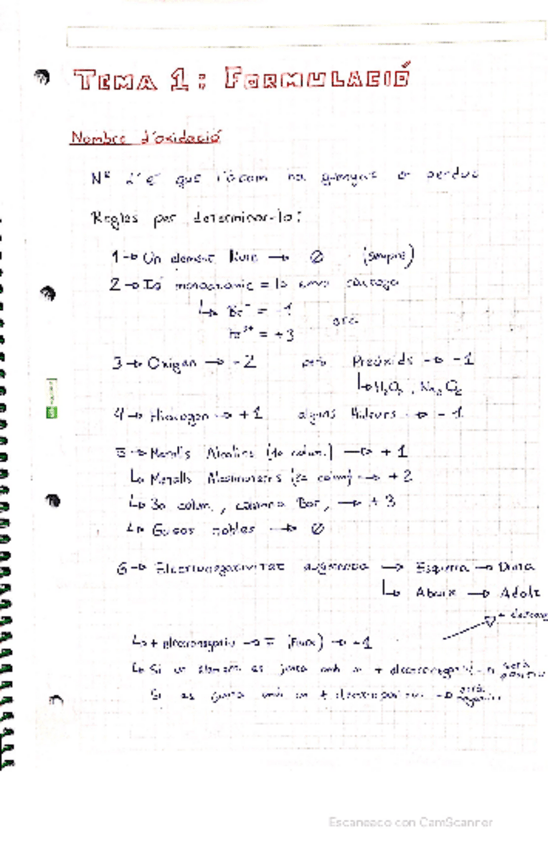 TEMA 1: FORMULACIÓ
Nombre d'oxidació
Nº d'e⁻ que l'àtom ha guanyat o perdut
Regles per determinar-lo:
1 → Un element lliure → ∅ (sempre)
2 → Ió monoatòmic = la seva càrrega
↳ Br⁻ = -1
= +3
3 → Oxigen → -2 però Peròxids → -1
↳ H₂O₂, Na₂O₂
4 → Hidrogen → +1 alguns Hidrurs → -1
5 → Metalls Alcalins (1a colum.) → +1
↳ Metalls Alcalinoterris (2a colum) → +2
↳ 3a colum, columna Bor, → +3
↳ Gasos nobles → ∅
6 → Electronegativitat augmenta → Esquerra → Dreta
↳ Abaix → Adalt
↳ + electronegatiu → F (Fluor) → -1
↳ Si un element es junta amb un + electronegatiu → serà positiu
Si es junta amb un + electropositiu → serà negatiu
Escaneado con CamScanner